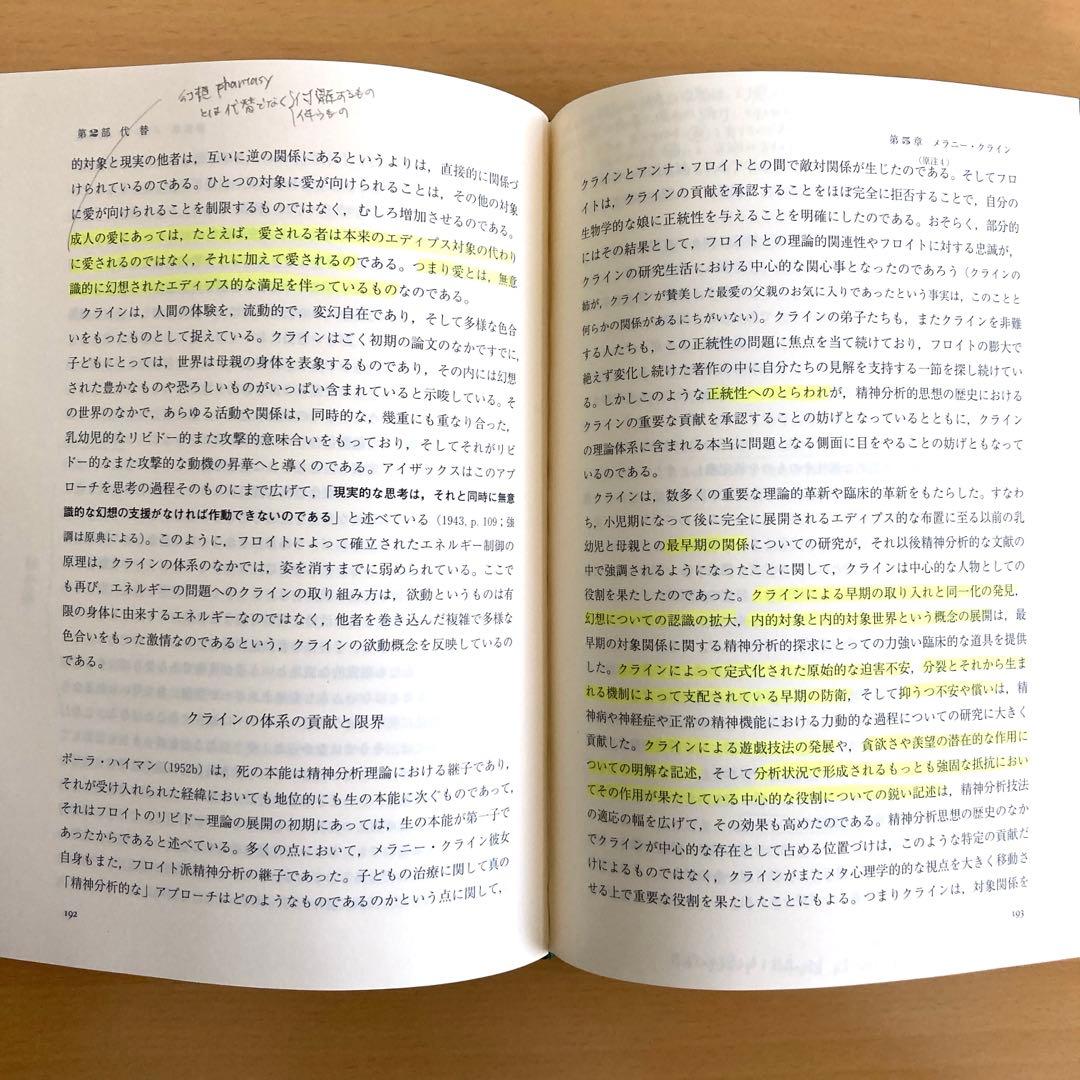 幻想 phantasy
とは代替でなく
付随するもの
伴うもの
第2部 代 替
的対象と現実の他者は，互いに逆の関係にあるというよりは，直接的に関係づ
けられているのである。ひとつの対象に愛が向けられることは，その他の対象
に愛が向けられることを制限するものではなく，むしろ増加させるのである。
成人の愛にあっては，たとえば，愛される者は本来のエディプス対象の代わり
に愛されるのではなく，それに加えて愛されるのである。つまり愛とは，無意
識的に幻想されたエディプス的な満足を伴っているものなのである。
クラインは，人間の体験を，流動的で，変幻自在であり，そして多様な色合
いをもったものとして捉えている。クラインはごく初期の論文のなかですでに，
子どもにとっては，世界は母親の身体を表象するものであり，その内には幻想
された豊かなものや恐ろしいものがいっぱい含まれていると示唆している。そ
の世界のなかで，あらゆる活動や関係は，同時的な，幾重にも重なり合った，
乳幼児的なリビドー的また攻撃的意味合いをもっており，そしてそれがリビ
ドー的なまた攻撃的な動機の昇華へと導くのである。アイザックスはこのアプ
ローチを思考の過程そのものにまで広げて，「現実的な思考は，それと同時に無意
識的な幻想の支援がなければ作動できないのである」と述べている（1943, p. 109；強
調は原典による）。このように，フロイトによって確立されたエネルギー制御の
原理は，クラインの体系のなかでは，姿を消すまでに弱められている。ここで
も再び，エネルギーの問題へのクラインの取り組み方は，欲動というものは有
限の身体に由来するエネルギーなのではなく，他者を巻き込んだ複雑で多様な
色合いをもった激情なのであるという，クラインの欲動概念を反映しているの
である。
クラインの体系の貢献と限界
ポーラ・ハイマン（1952b）は，死の本能は精神分析理論における継子であり，
それが受け入れられた経緯においても地位的にも生の本能に次ぐものであって，
それはフロイトのリビドー理論の展開の初期にあっては，生の本能が第一子で
あったからであると述べている。多くの点において，メラニー・クライン彼女
自身もまた，フロイト派精神分析の継子であった。子どもの治療に関して真の
「精神分析的な」アプローチはどのようなものであるのかという点に関して，
192
第5章 メラニー・クライン
クラインとアンナ・フロイトとの間で敵対関係が生じたのである（原注4）。そしてフロ
イトは，クラインの貢献を承認することをほぼ完全に拒否することで，自分の
生物学的な娘に正統性を与えることを明確にしたのである。おそらく，部分的
にはその結果として，フロイトとの理論的関連性やフロイトに対する忠誠が，
クラインの研究生活における中心的な関心事となったのであろう（クラインの
姉が，クラインが賛美した最愛の父親のお気に入りであったという事実は，このことと
何らかの関係があるにちがいない）。クラインの弟子たちも，またクラインを非難
する人たちも，この正統性の問題に焦点を当て続けており，フロイトの膨大で
絶えず変化し続けた著作の中に自分たちの見解を支持する一節を探し続けてい
る。しかしこのような正統性へのとらわれが，精神分析的思想の歴史における
クラインの重要な貢献を承認することの妨げとなっているとともに，クライン
の理論体系に含まれる本当に問題となる側面に目をやることの妨げともなって
いるのである。
クラインは，数多くの重要な理論的革新や臨床的革新をもたらした。すなわ
ち，小児期になって後に完全に展開されるエディプス的な布置に至る以前の乳
幼児と母親との最早期の関係についての研究が，それ以後精神分析的な文献の
中で強調されるようになったことに関して，クラインは中心的な人物としての
役割を果たしたのであった。クラインによる早期の取り入れと同一化の発見，
幻想についての認識の拡大，内的対象と内的対象世界という概念の展開は，最
早期の対象関係に関する精神分析的探求にとっての力強い臨床的な道具を提供
した。クラインによって定式化された原始的な迫害不安，分裂とそれから生ま
れる機制によって支配されている早期の防衛，そして抑うつ不安や償いは，精
神病や神経症や正常の精神機能における力動的な過程についての研究に大きく
貢献した。クラインによる遊戯技法の発展や，貪欲さや羨望の潜在的な作用に
ついての明解な記述，そして分析状況で形成されるもっとも強固な抵抗におい
てその作用が果たしている中心的な役割についての鋭い記述は，精神分析技法
の適応の幅を広げて，その効果も高めたのである。精神分析思想の歴史のなか
でクラインが中心的な存在として占める位置づけは，このような特定の貢献だ
けによるものではなく，クラインがまたメタ心理学的的な視点を大きく移動さ
せる上で重要な役割を果たしたことにもよる。つまりクラインは，対象関係を
193